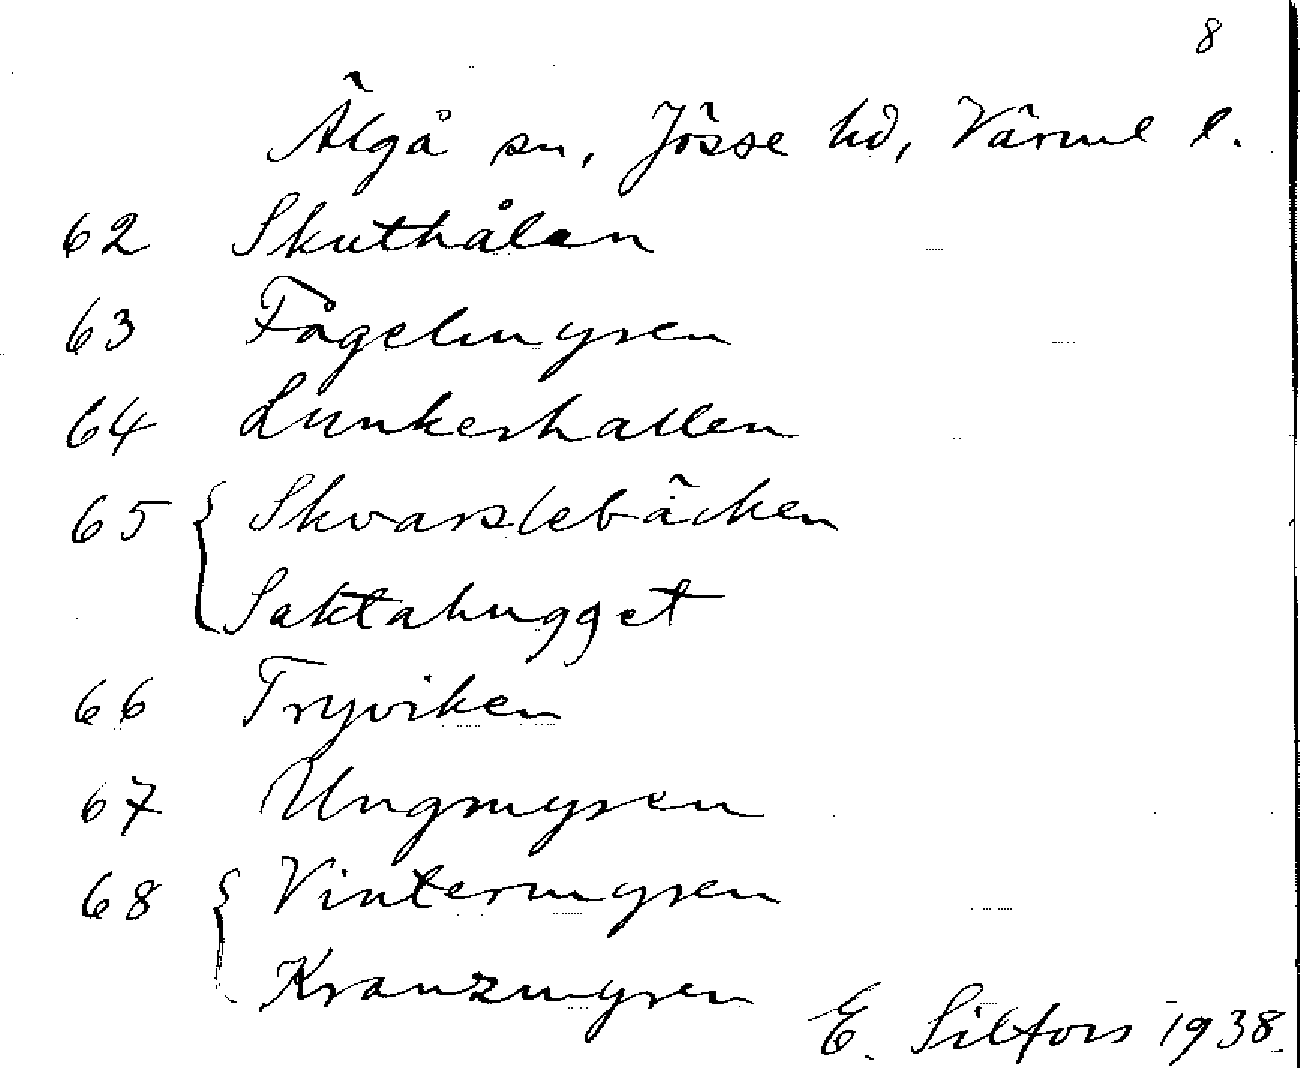 8
Älgå sn, Jösse hd, Värml l.
62 Skuthålen
63 Fågelmyren
64 Lunkerhallen
65 { Skvarslebäcken
Saktahugget
66 Tryviken
67 Ungmyren
68 { Vintermyren
Kranzmyren
E. Silfors 1938.